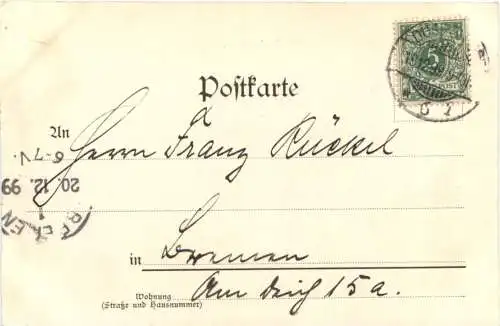 Postkarte
An
Herrn Franz Rückel
in
Bremen
Wohnung
(Straße und Hausnummer)
Am Deich 15a.
5
POST
6-7V.
20.12.99